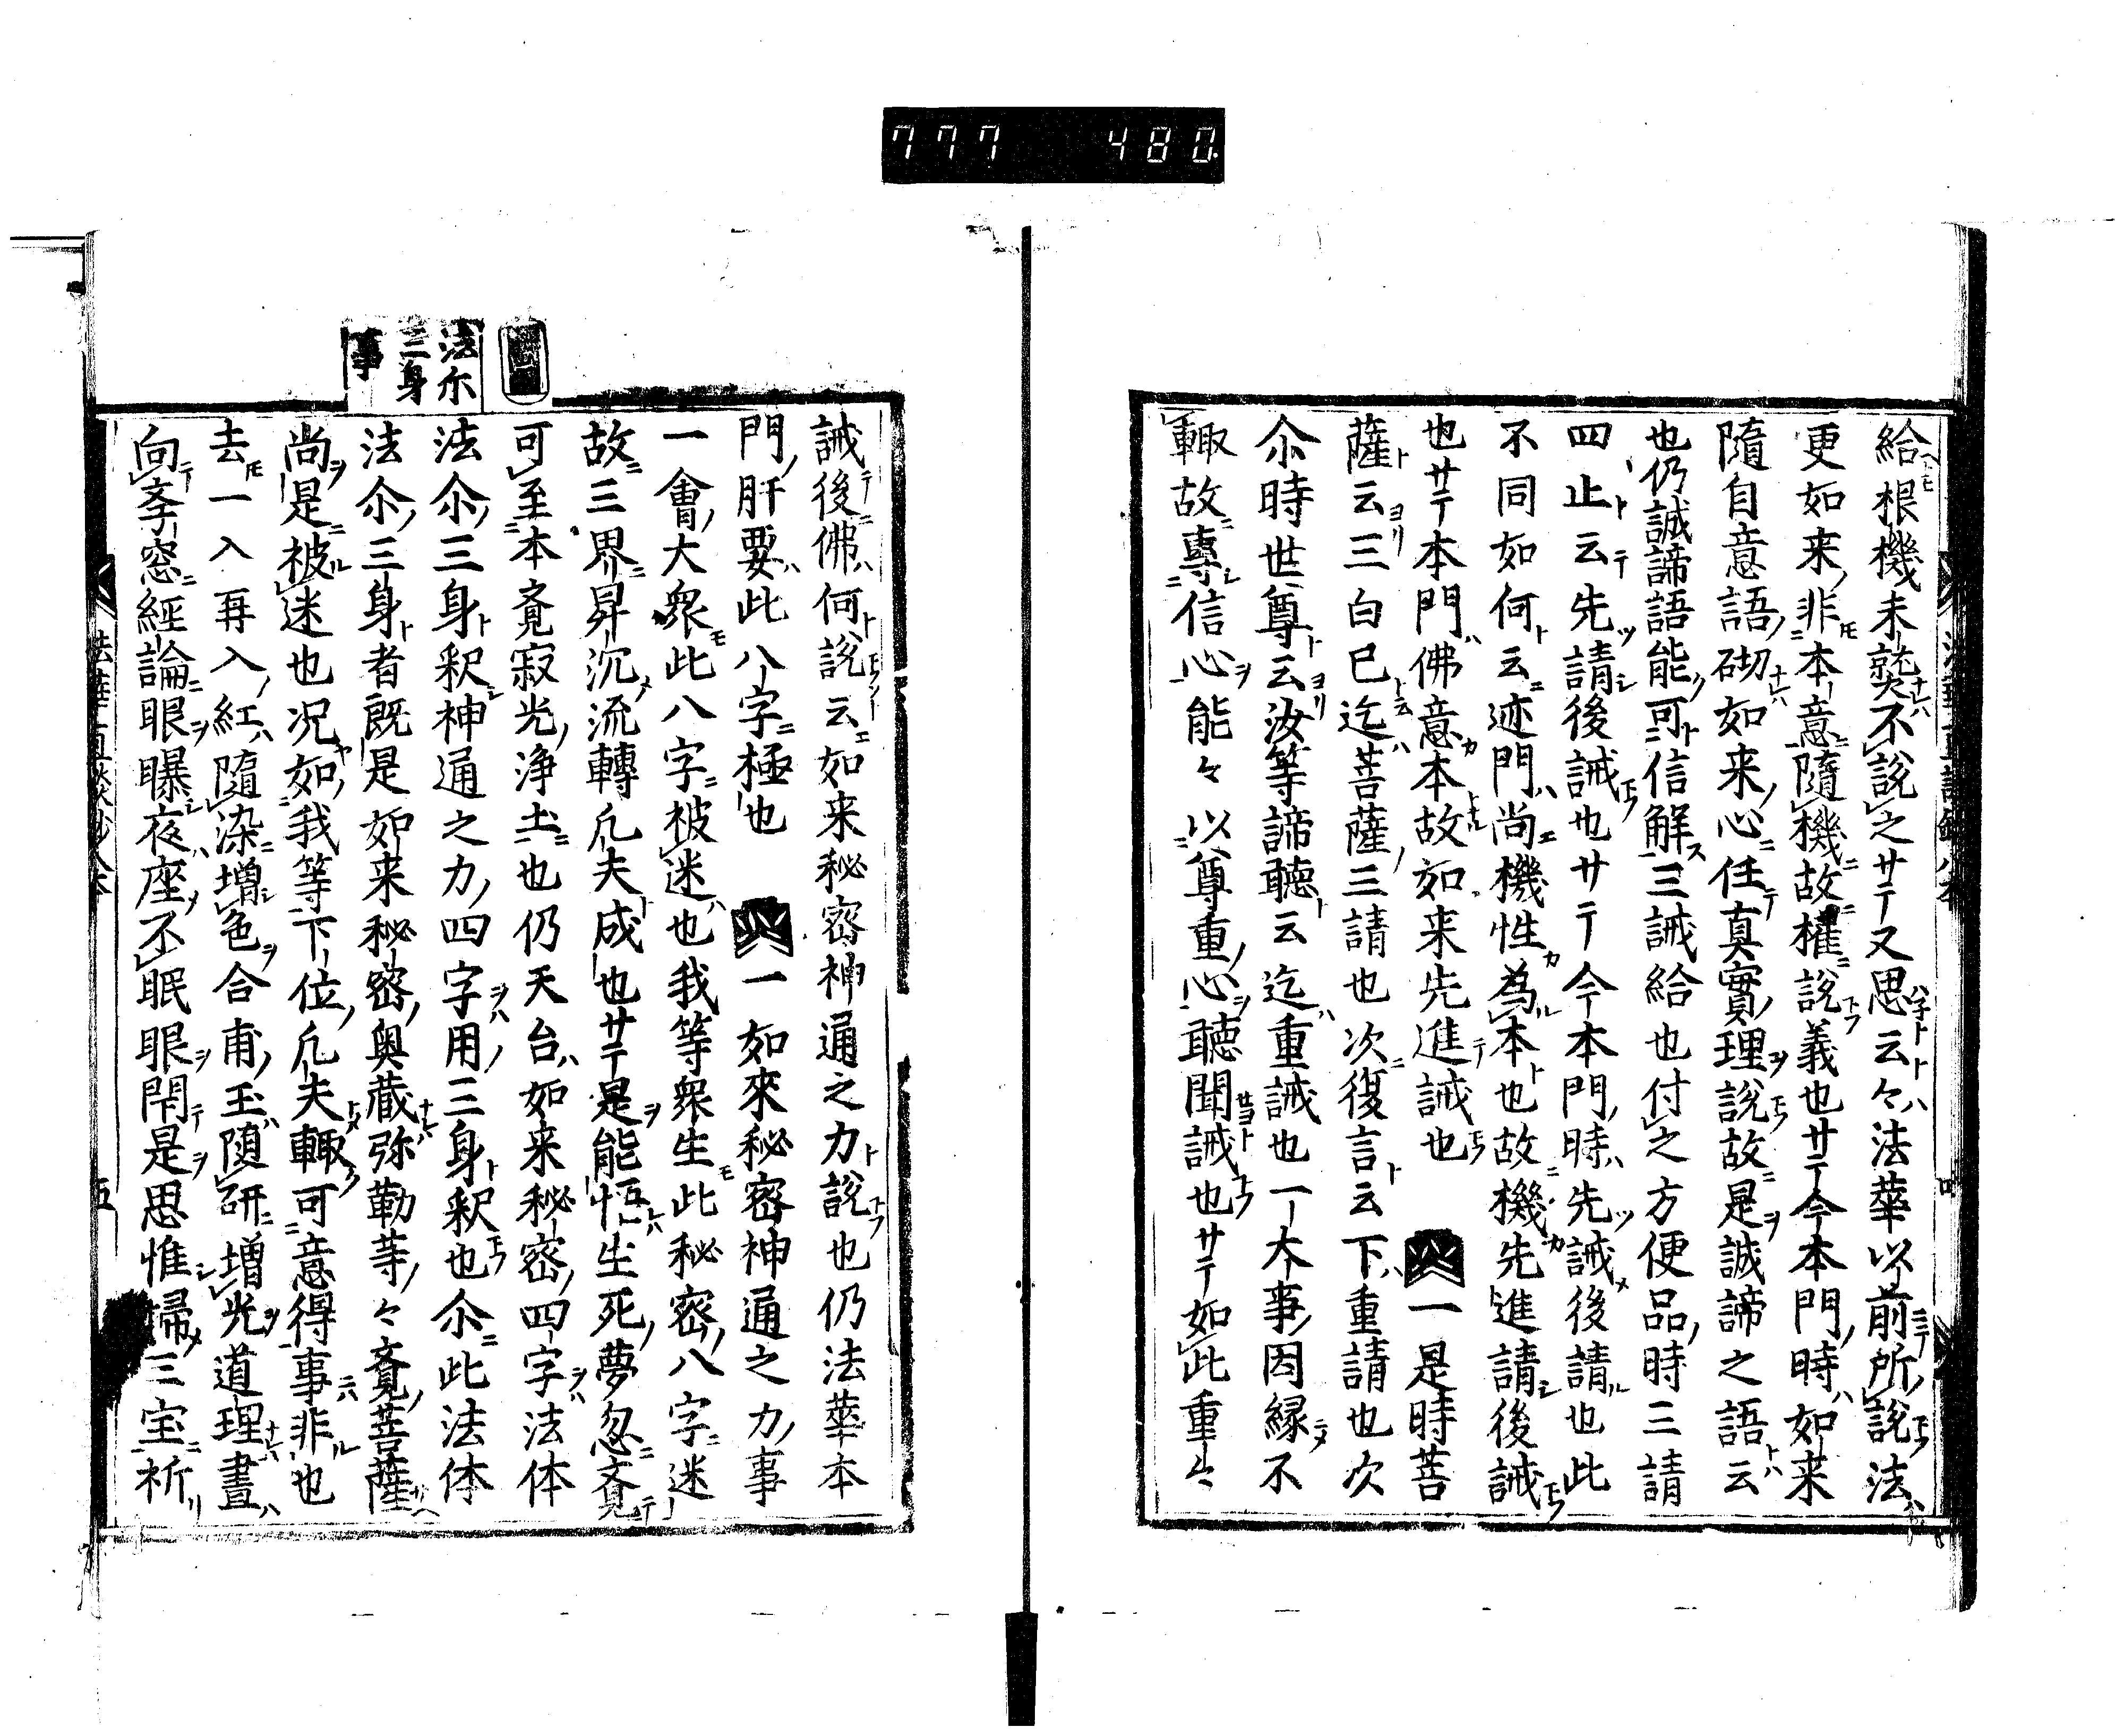 777 480
給根機未熟不説之サテ又思云々法華以前所説法
更如来非本意隨機故權説義也サテ今本門時如来
隨自意語砌如来心任真實理説故是誠諦之語云
也仍誠諦語能可信解三誡給也付之方便品時三請
四止云先請後誡也サテ今本門時先誡後請也此
不同如何云迹門尚機性為本也故機先進請後誡
也サテ本門佛意本故如来先進誡也 一是時菩
薩云三白已迄菩薩三請也次復言云下重請也次
尒時世尊云汝等諦聴云迄重誡也一大事因縁不
輙故專信心能々以尊重心聴聞誡也サテ如此重々
誡後佛何説云如来秘密神通之力説也仍法華本
門肝要此八字極也 一如來秘密神通之力事
一會大衆此八字被迷也我等衆生此秘密八字迷
故三界昇沉流轉凡夫成也サテ是能悟生死夢忽覚
可至本覚寂光浄土也仍天台如来秘密四字法体
法尒三身釈神通之力四字用三身釈也尒此法体
法尒三身者既是如来秘密奥蔵弥勒等々覚菩薩
尚是被迷也况如我等下位凡夫輙可意得事非也
去一入再入紅隨染増色合甫玉随研増光道理晝
向孝窓經論眼曝夜座不眠眼閇是思惟帰三宝祈
法尒
三身
事
法華直談鈔八本
五